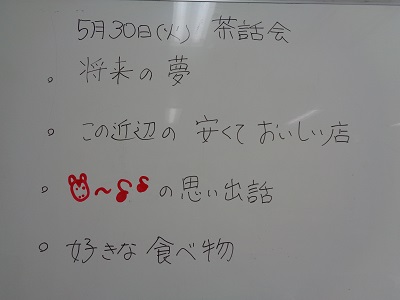 5月30日(火) 茶話会
。将来の夢
。この近辺の 安くて おいしい店
。〜の思い出話
。好きな 食べ物